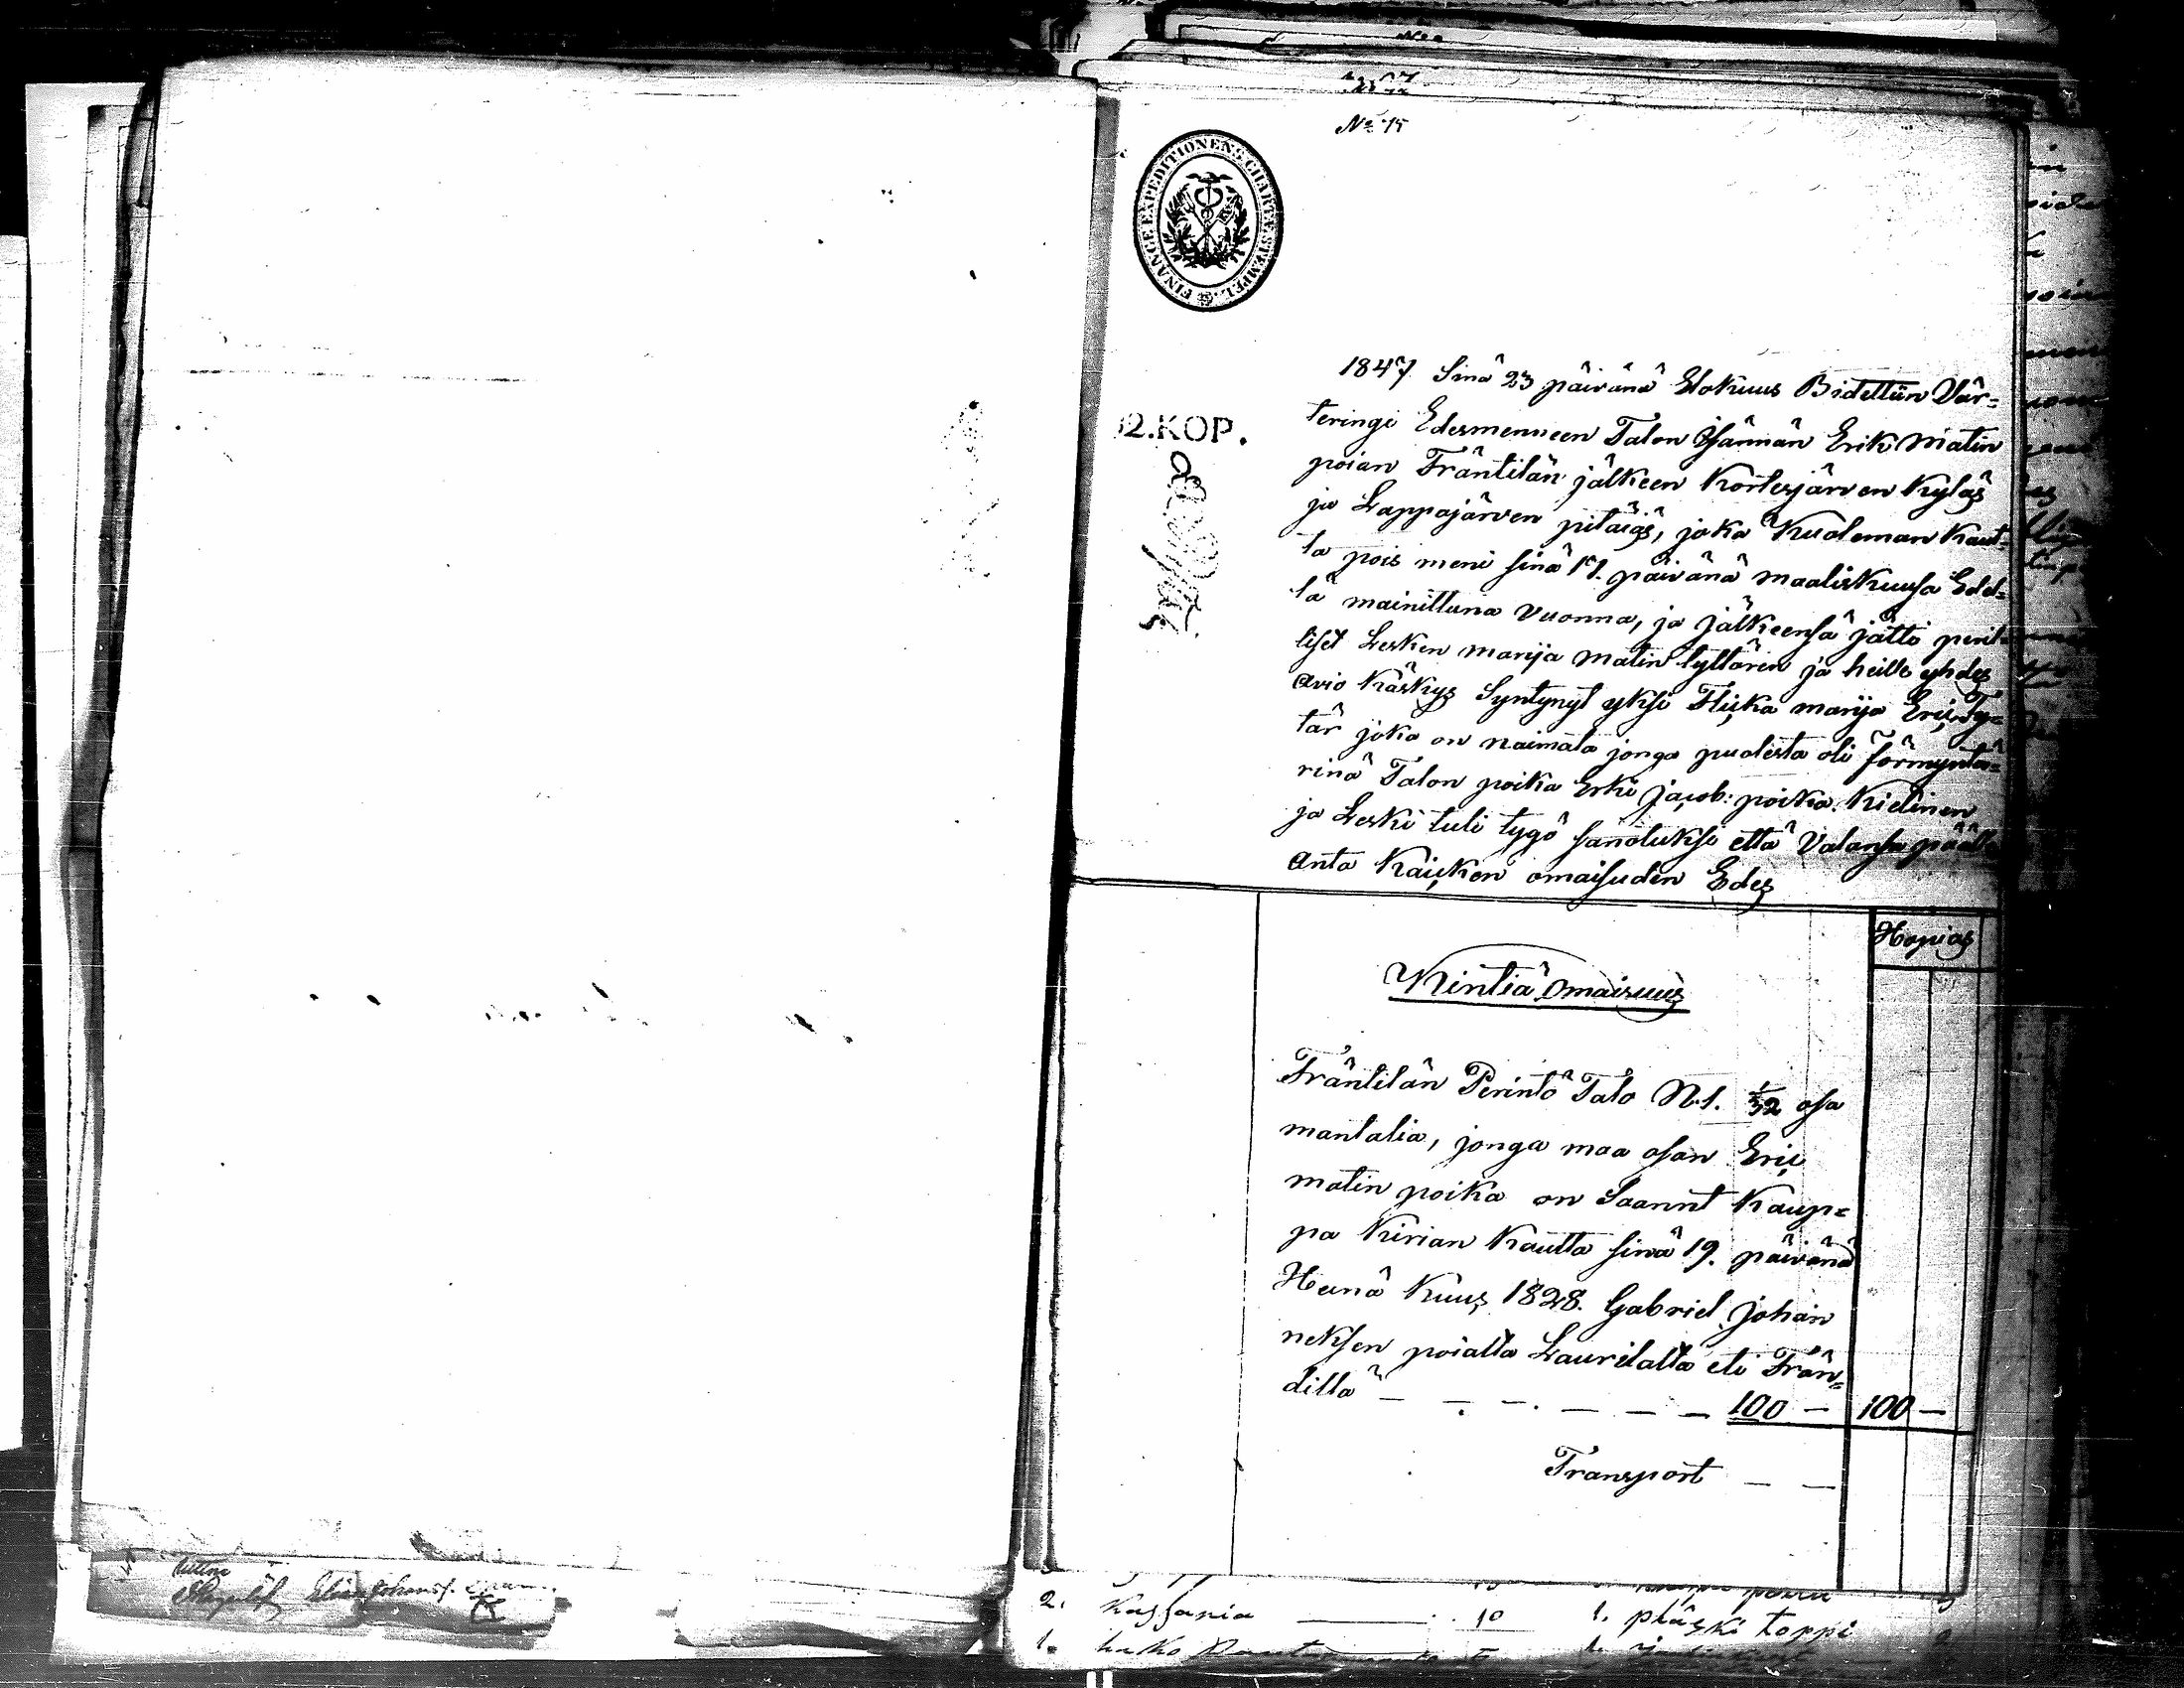 No 75
FINANCE EXPEDITIONENS CHARTÆ STEMPEL
32.KOP.
1847 Sinä 23 päivänä Elokuus Bidettiin Vär=
teringi Edesmenneen Talon Isännän Erik Matin
poian Fräntilän jälkeen Kortesjärven Kyläs
ja Lappajärven pitäjäs, joka Kuoleman Kaut=
ta pois meni sinä 17. päivänä maaliskuusa Edel=
lä mainittuna vuonna, ja jälkeensä jätti peril=
liset Lesken marija matin tyttären ja heille yhdes
avio käskys Syntynyt yksi Flicka marija Eric Ty=
tär joka on naimata jonga puolesta oli förmyndä=
rinä Talon poika Erki Jacob: poika Kielinen
ja Leski tuli tygö sanotuksi että Valansa päälle
Anta Kaicken omaisuden Edes
Hopias
Kintiä Omaisuus
Fräntilän Perintö Talo N.1. 1/32 osa
mantalia, jonga maa osan Eric
matin poika on Saanut Kaup=
pa Kirian Kautta sinä 19. päivänä
Heinä Kuus 1828. Gabriel Johan
neksen poialta Laurilalta eli Frän=
dillä — — — — — — 100 — 100 —
Transport — —
2. Kassaria — 10
1. pläski toppi
1.